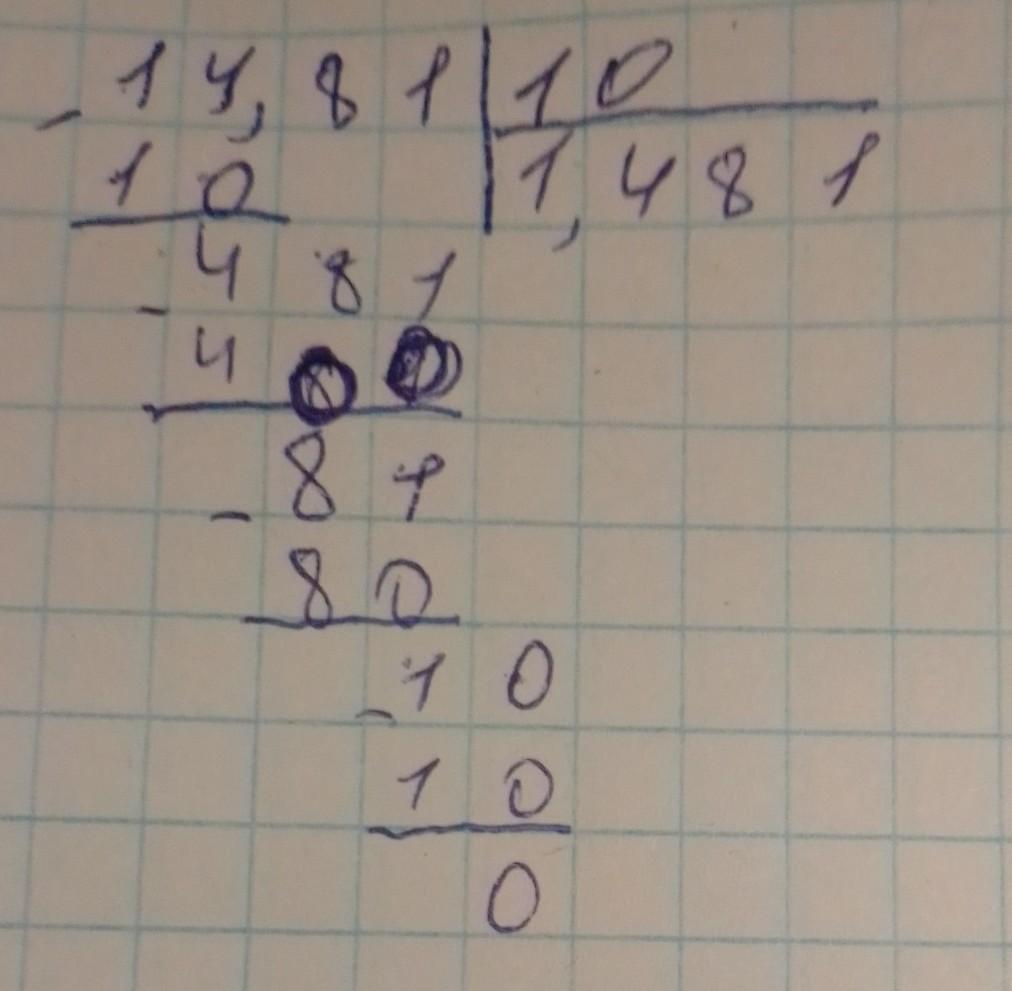 - 14,81 | 10
10 | 1,481
- 481
400
- 81
80
- 10
10
0